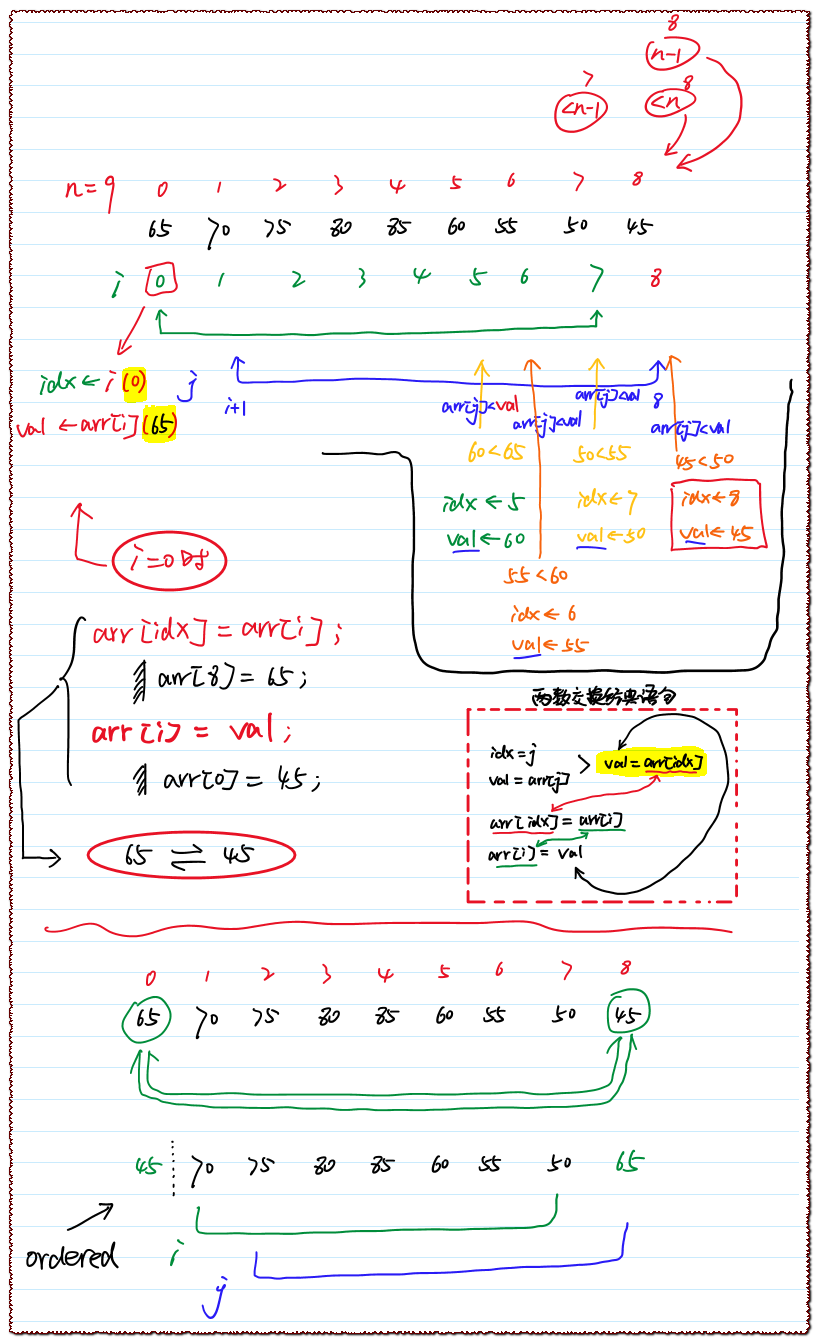 8
n-1
7 8
<n-1 <n
n=9 0 1 2 3 4 5 6 7 8
65 70 75 80 85 60 55 50 45
i 0 1 2 3 4 5 6 7 8
idx ← i(0) j
i+1
val ← arr[i](65)
arr[j]<val
60<65
idx ← 5
val ← 60
arr[j]<val
55<60
idx ← 6
val ← 55
arr[j]<val
50<55
idx ← 7
val ← 50
8
arr[j]<val
45<50
idx ← 8
val ← 45
i=0时
arr[idx] = arr[i];
arr[8] = 65;
arr[i] = val;
arr[0] = 45;
65 ⇌ 45
两数交换经典语句
idx=j
val = arr[j]
> val = arr[idx]
arr[idx] = arr[i]
arr[i] = val
0 1 2 3 4 5 6 7 8
65 70 75 80 85 60 55 50 45
45 70 75 80 85 60 55 50 65
ordered
i
j